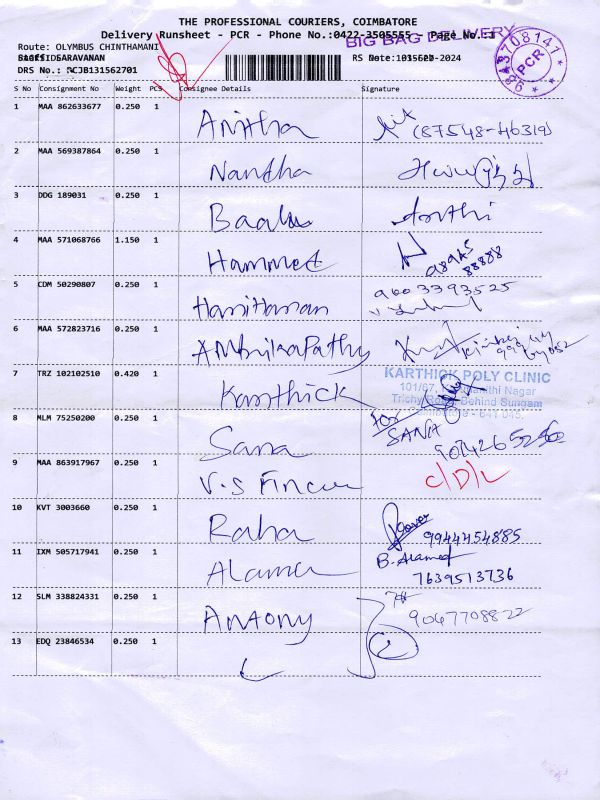 THE PROFESSIONAL COURIERS, COIMBATORE
Delivery Runsheet - PCR - Phone No.:0422-3505555 - Page No.:1
BIG BAG DELIVERY
Route: OLYMBUS CHINTHAMANI
SARAVANAN
DRS No.: PCJB131562701
43708141
PCR
S No Consignment No Weight PCS Consignee Details Signature
1 MAA 862633677 0.250 1 Anitha (87548-46319)
2 MAA 569387864 0.250 1 Nantha
3 DDG 189031 0.250 1 Baalu Arthi
4 MAA 571068766 1.150 1 Hammed
88888
5 CDM 50290807 0.250 1 Haritharan 9603393525
6 MAA 572823716 0.250 1 AMbikaPathy
7 TRZ 102102510 0.420 1 Karthick
KARTHICK POLY CLINIC
Trichy Road, Behind Sungam
Coimbatore - 641 045.
8 MLM 75250200 0.250 1 Sana For SANA
9 MAA 863917967 0.250 1 V.S C/D/L
10 KVT 3003660 0.250 1 Raha 9944454885
11 IXM 505717941 0.250 1 Alamed B. Alamed
7639513736
12 SLM 338824331 0.250 1 Antony 9047708822
13 EDQ 23846534 0.250 1 2